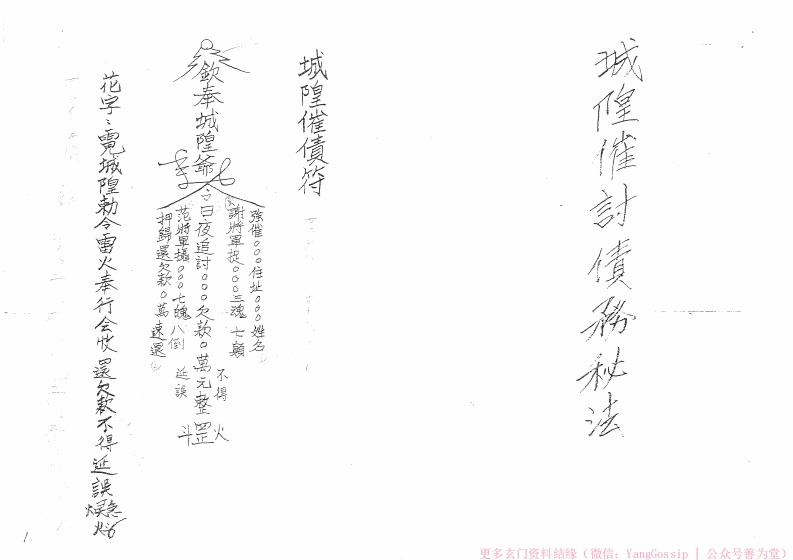 城隍催討債務秘法
城隍催債符
強催○○○住址○○○姓名
謝將軍捉○○○三魂七顛
欽奉城隍爺令日夜追討○○○欠款○萬元整
不得
延誤
火罡斗
范將軍攝○○○七魄八倒
押歸還欠款○萬速還
花字:霓城隍勅令雷火奉行会收還欠款不得延誤
1.
更多玄门资料结缘（微信：YangGossip | 公众号善为堂）